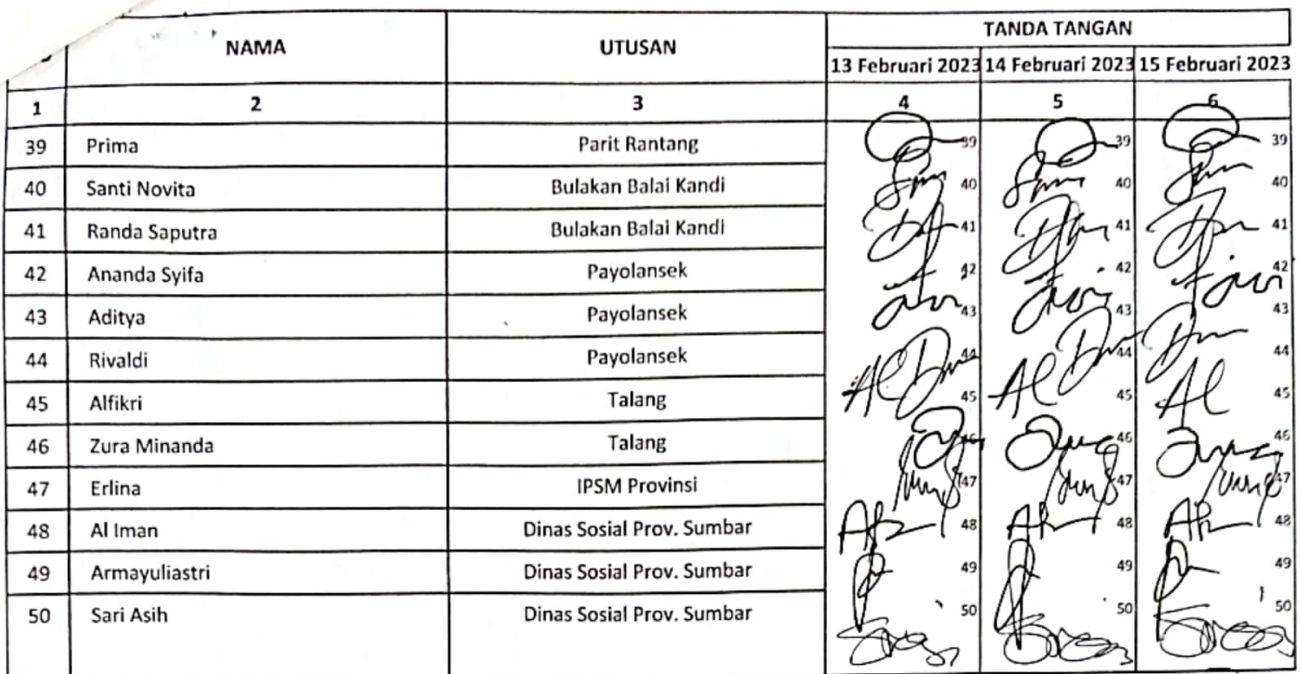 NAMA UTUSAN TANDA TANGAN
13 Februari 2023 14 Februari 2023 15 Februari 2023
1 2 3 4 5 6
39 Prima Parit Rantang 39 39 39
40 Santi Novita Bulakan Balai Kandi 40 40 40
41 Randa Saputra Bulakan Balai Kandi 41 41 41
42 Ananda Syifa Payolansek 42 42 42
43 Aditya Payolansek 43 43 43
44 Rivaldi Payolansek 44 44 44
45 Alfikri Talang 45 45 45
46 Zura Minanda Talang 46 46 46
47 Erlina IPSM Provinsi 47 47 47
48 Al Iman Dinas Sosial Prov. Sumbar 48 48 48
49 Armayuliastri Dinas Sosial Prov. Sumbar 49 49 49
50 Sari Asih Dinas Sosial Prov. Sumbar 50 50 50